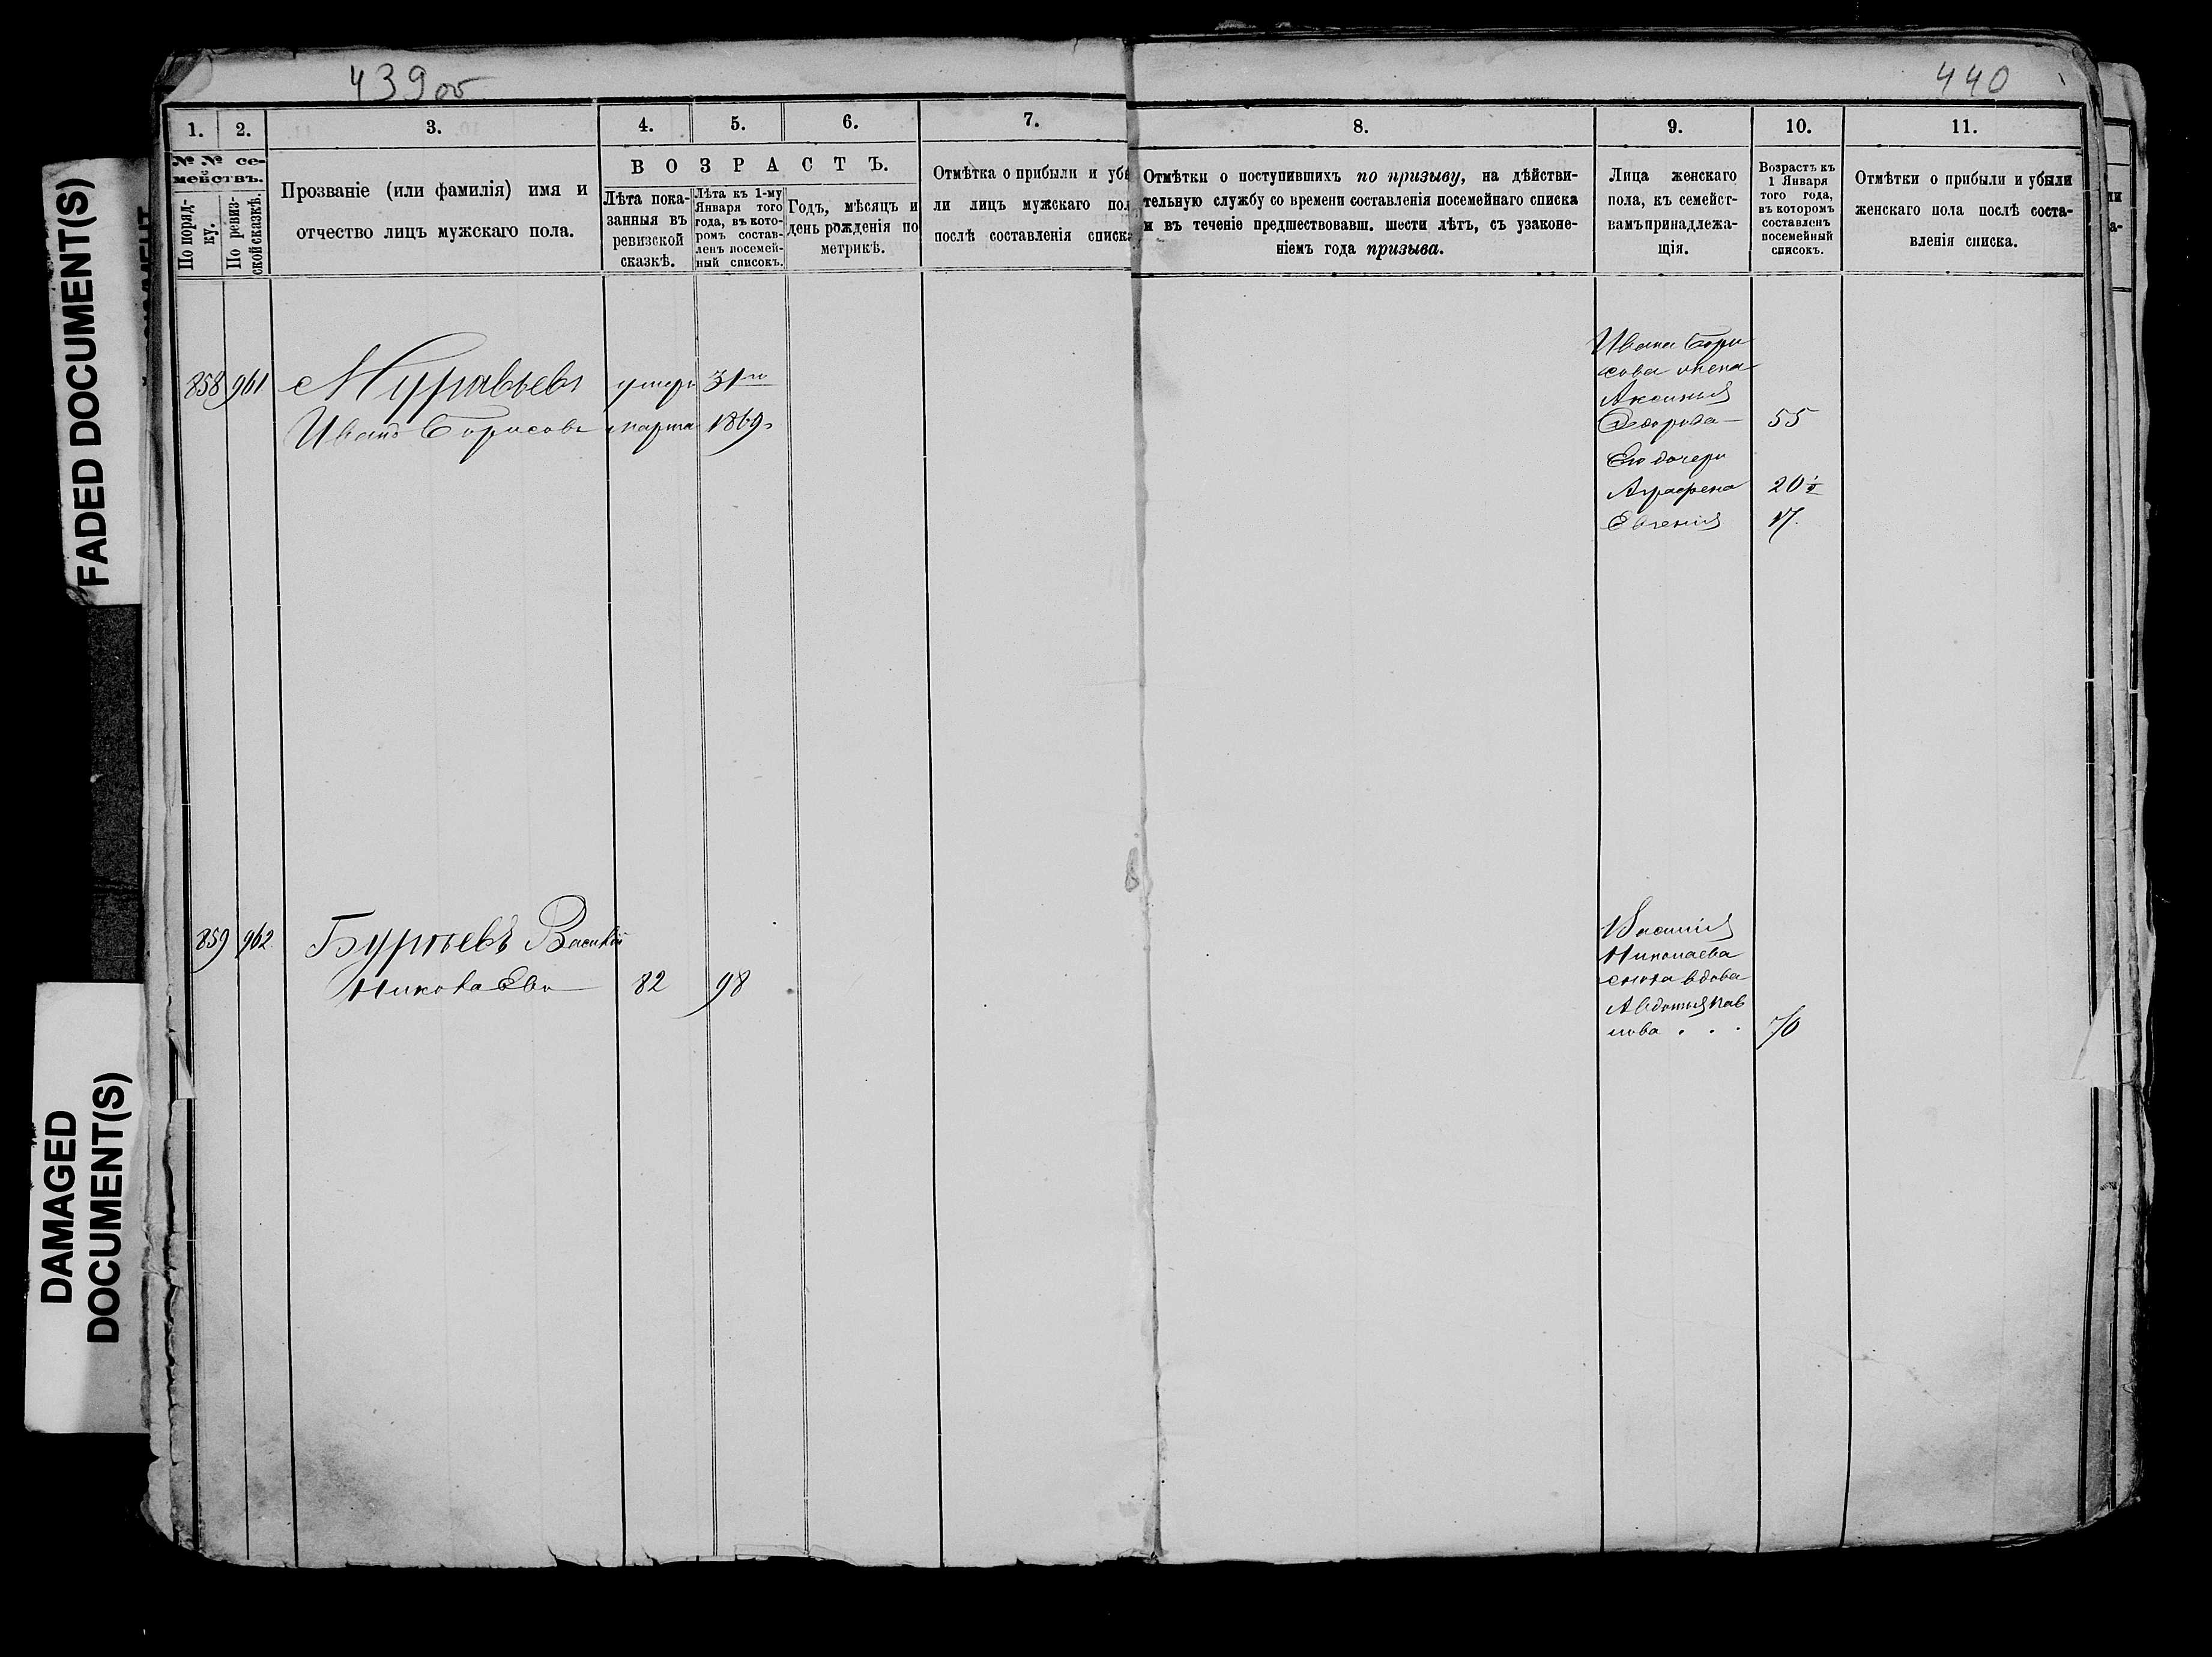 439об
440
FADED DOCUMENT(S)
DAMAGED
DOCUMENT(S)
1. 2. 3. 4. 5. 6. 7. 8. 9. 10. 11.
№ № се-
мействъ.
По поряд-
ку.
По ревиз-
ской сказкѣ.
Прозваніе (или фамилія) имя и
отчество лицъ мужскаго пола.
ВОЗРАСТЪ.
Лѣта пока-
занныя въ
ревизской
сказкѣ.
Лѣта къ 1-му
Января того
года, въ кото-
ромъ состав-
ленъ посемей-
ный списокъ.
Годъ, мѣсяцъ и
день рожденія по
метрикѣ.
Отмѣтка о прибыли и убы
ли лицъ мужскаго пол
послѣ составленія списка
Отмѣтки о поступившихъ по призыву, на дѣйстви-
тельную службу со времени составленія посемейнаго списка
и въ теченіе предшествовавш. шести лѣтъ, съ узаконе-
ніемъ года призыва.
Лица женскаго
пола, къ семейст-
вамъ принадлежа-
щія.
Возрастъ къ
1 Января
того года,
въ которомъ
составленъ
посемейный
списокъ.
Отмѣтки о прибыли и убыли
женскаго пола послѣ соста-
вленія списка.
858 961 Муравьевъ умеръ 31го
Иванъ Борисовъ марта 1869г
Ивана Бори
сова жена
Аксинья
Федорова 55
Его дочери
Аграфена 20 ½
Евгенія 17.
859 962 Бурцевъ Василій
Николаевъ 82 98
Василія
Николаева
сноха вдова
Авдотья Пав
лова . . . 70